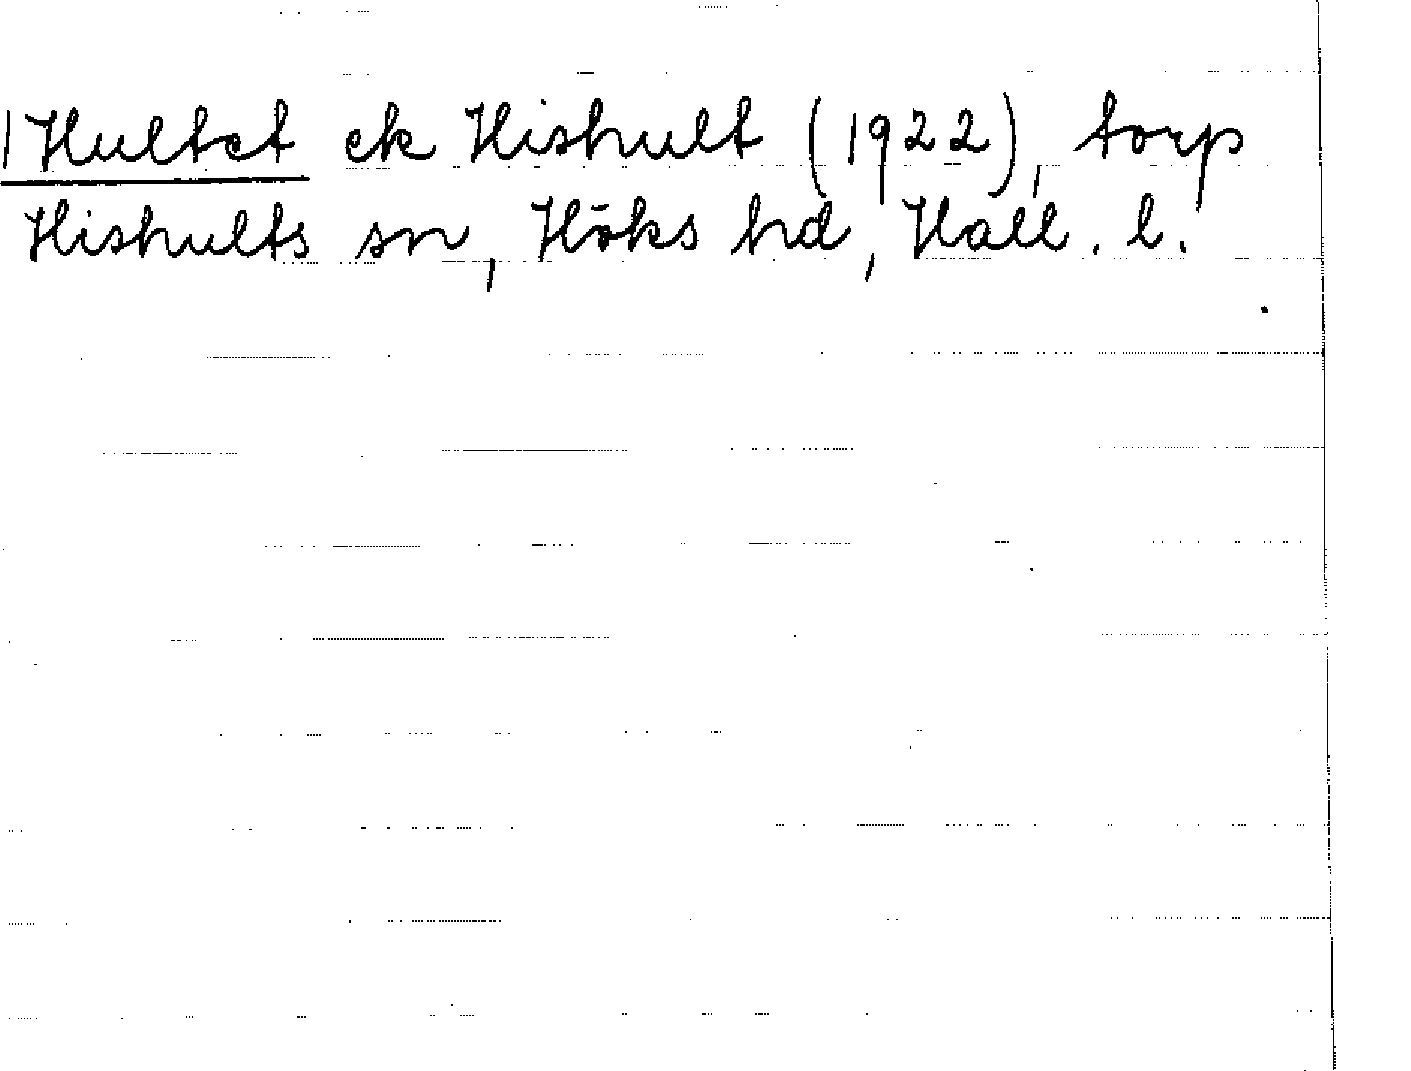 1 Hultet ek Hishult (1922), torp
Hishults sn, Höks hd, Hall. l.